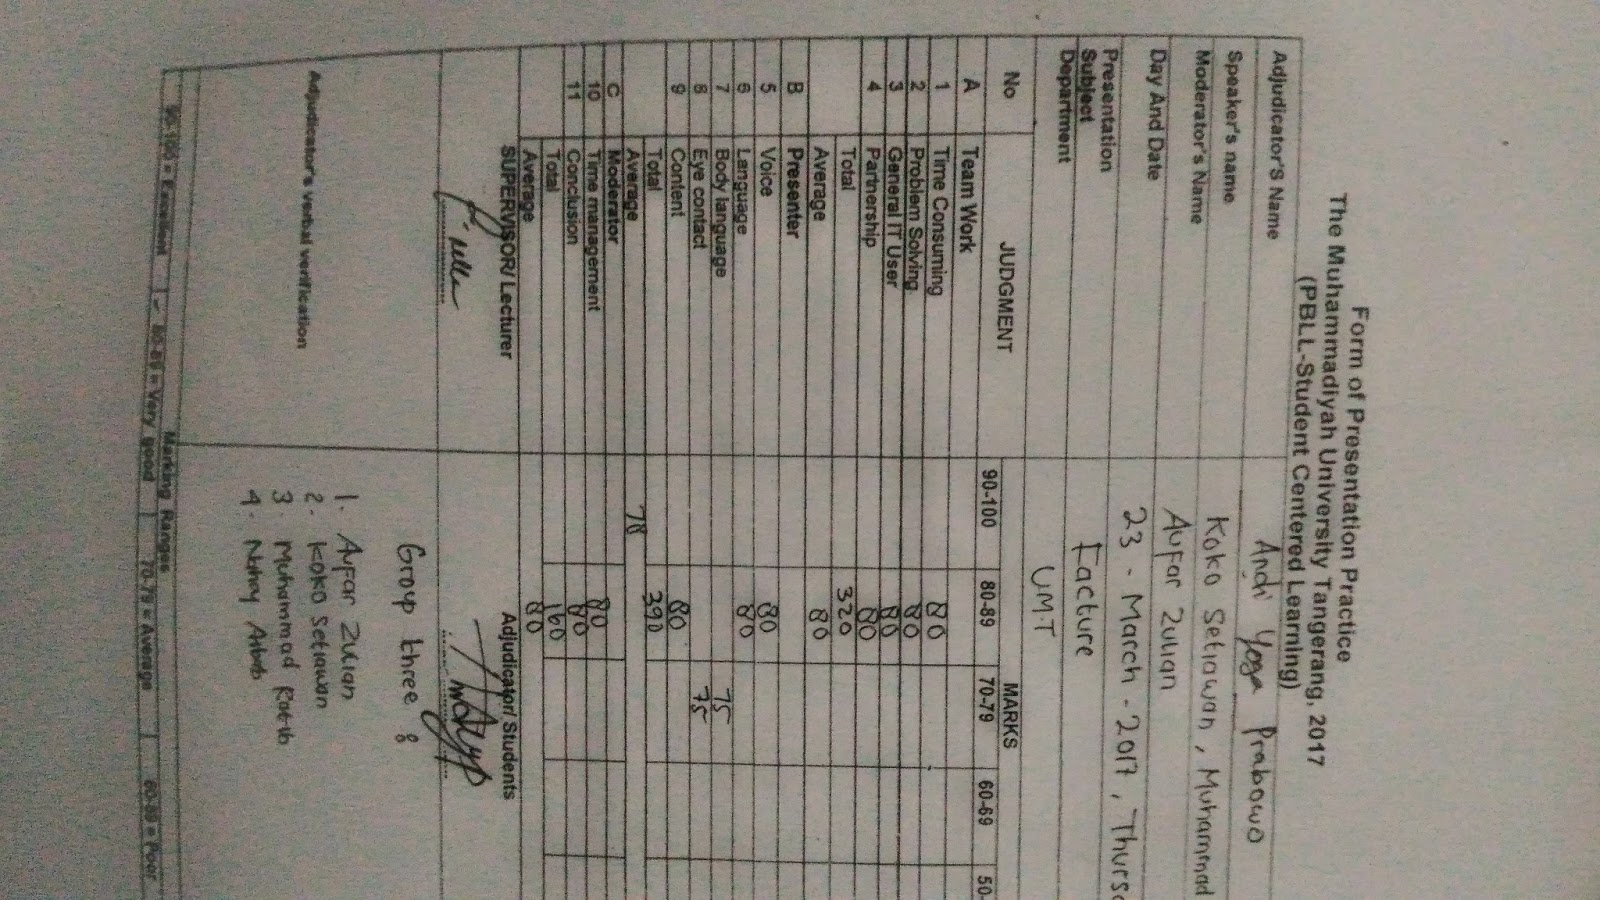 Form of Presentation Practice
The Muhammadiyah University Tangerang, 2017
(PBLL-Student Centered Learning)
Adjudicator'S Name Andi Yoga Prabowo
Speaker's name Koko Setiawan, Muhammad
Moderator's Name Aufar Zulian
Day And Date 23 - March - 2017, Thurs
Presentation Subject Facture
Department U.M.T
No JUDGMENT MARKS
90-100 80-89 70-79 60-69 50-
A Team Work
1 Time Consuming 80
2 Problem Solving 80
3 General IT User 80
4 Partnership 80
Total 320
Average 80
B Presenter
5 Voice 80
6 Language 80
7 Body language 75
8 Eye contact 75
9 Content 80
Total 390
Average 78
C Moderator
10 Time management 80
11 Conclusion 80
Total 160
Average 80
SUPERVISOR/ Lecturer Adjudicator/ Students
Adjudicator's verbal verification
Group three :
1. Aufar Zulian
2. Koko Setiawan
3. Muhammad
4.
Marking Ranges
90-100 = Excellent 80-89 = Very good 70-79 = Average 60-69 = Poor